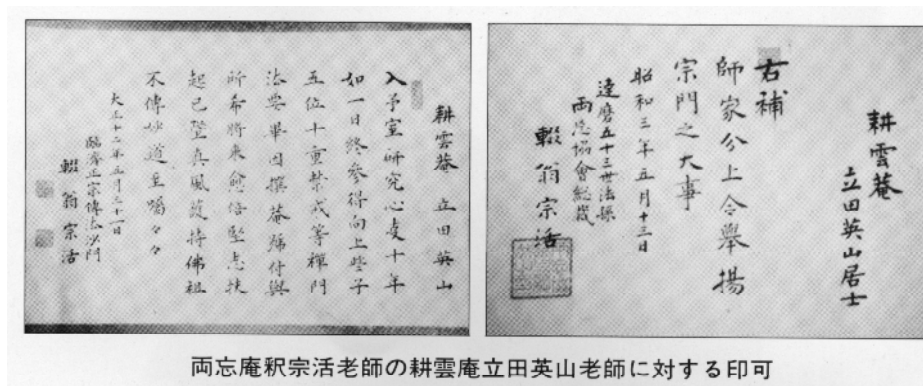 耕雲菴 立田英山
入予室研究心要十年
如一日終参得向上些子
五位十重禁戒等禪門
法要畢因撰菴號付與
所希将来愈倍堅志扶
起已墜真風護持佛祖
不傳妙道至囑々々
大正十二年五月三十一日
臨濟正宗傳法沙門
輟翁宗活
耕雲菴
立田英山居士
右補
師家分上令舉揚
宗門之大事
昭和三年五月十三日
達磨五十三世法孫
両忘協會総裁
輟翁宗活
両忘庵釈宗活老師の耕雲庵立田英山老師に対する印可